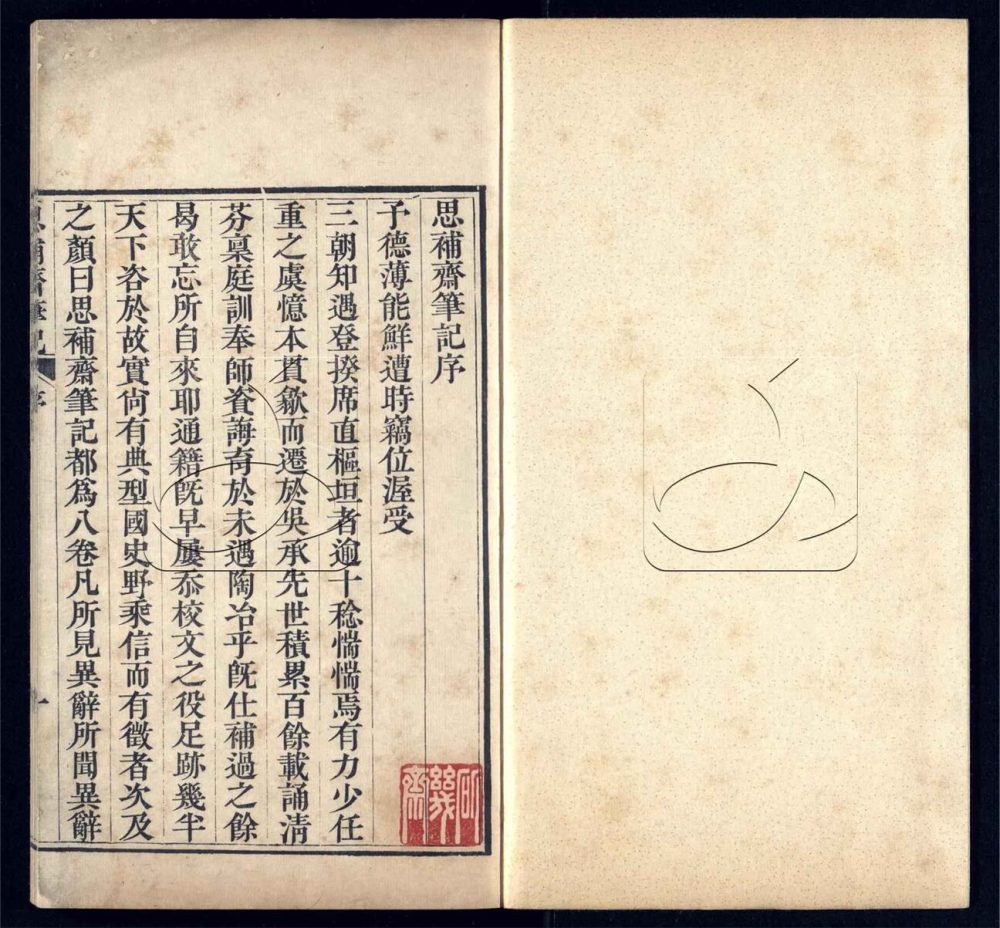 思補齋筆記序
予德薄能鮮遭時竊位渥受
三朝知遇登揆席直樞垣者逾十稔惴惴焉有力少任
重之虞憶本貫歙而遷於吳承先世積累百餘載誦清
芬稟庭訓奉師資誨育於未遇陶冶乎旣仕補過之餘
曷敢忘所自來耶通籍旣早屢忝校文之役足跡幾半
天下咨於故實尙有典型國史野乘信而有徵者次及
之顏曰思補齋筆記都爲八卷凡所見異辭所聞異辭
思補齋筆記
序
一